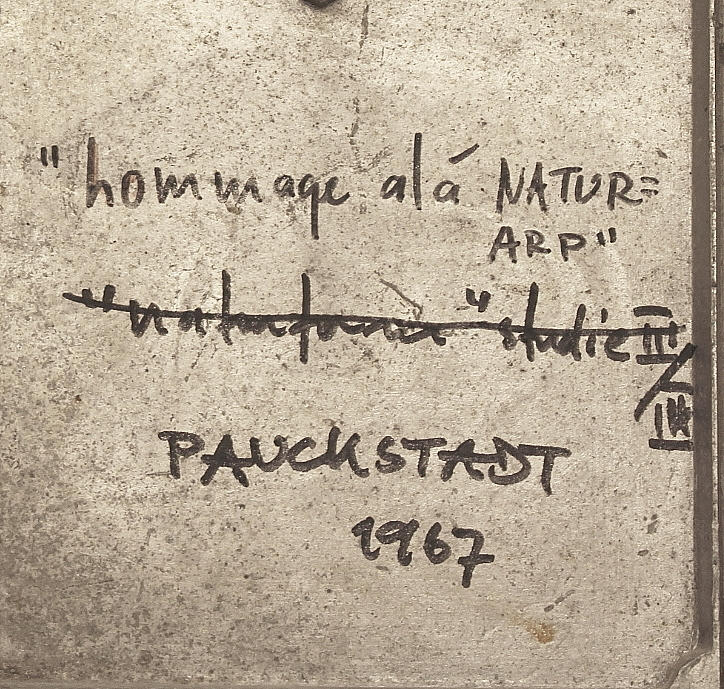 "hommage alá NATUR=
ARP"
"naturform" studie III/
IV
PAUCKSTADT
1967